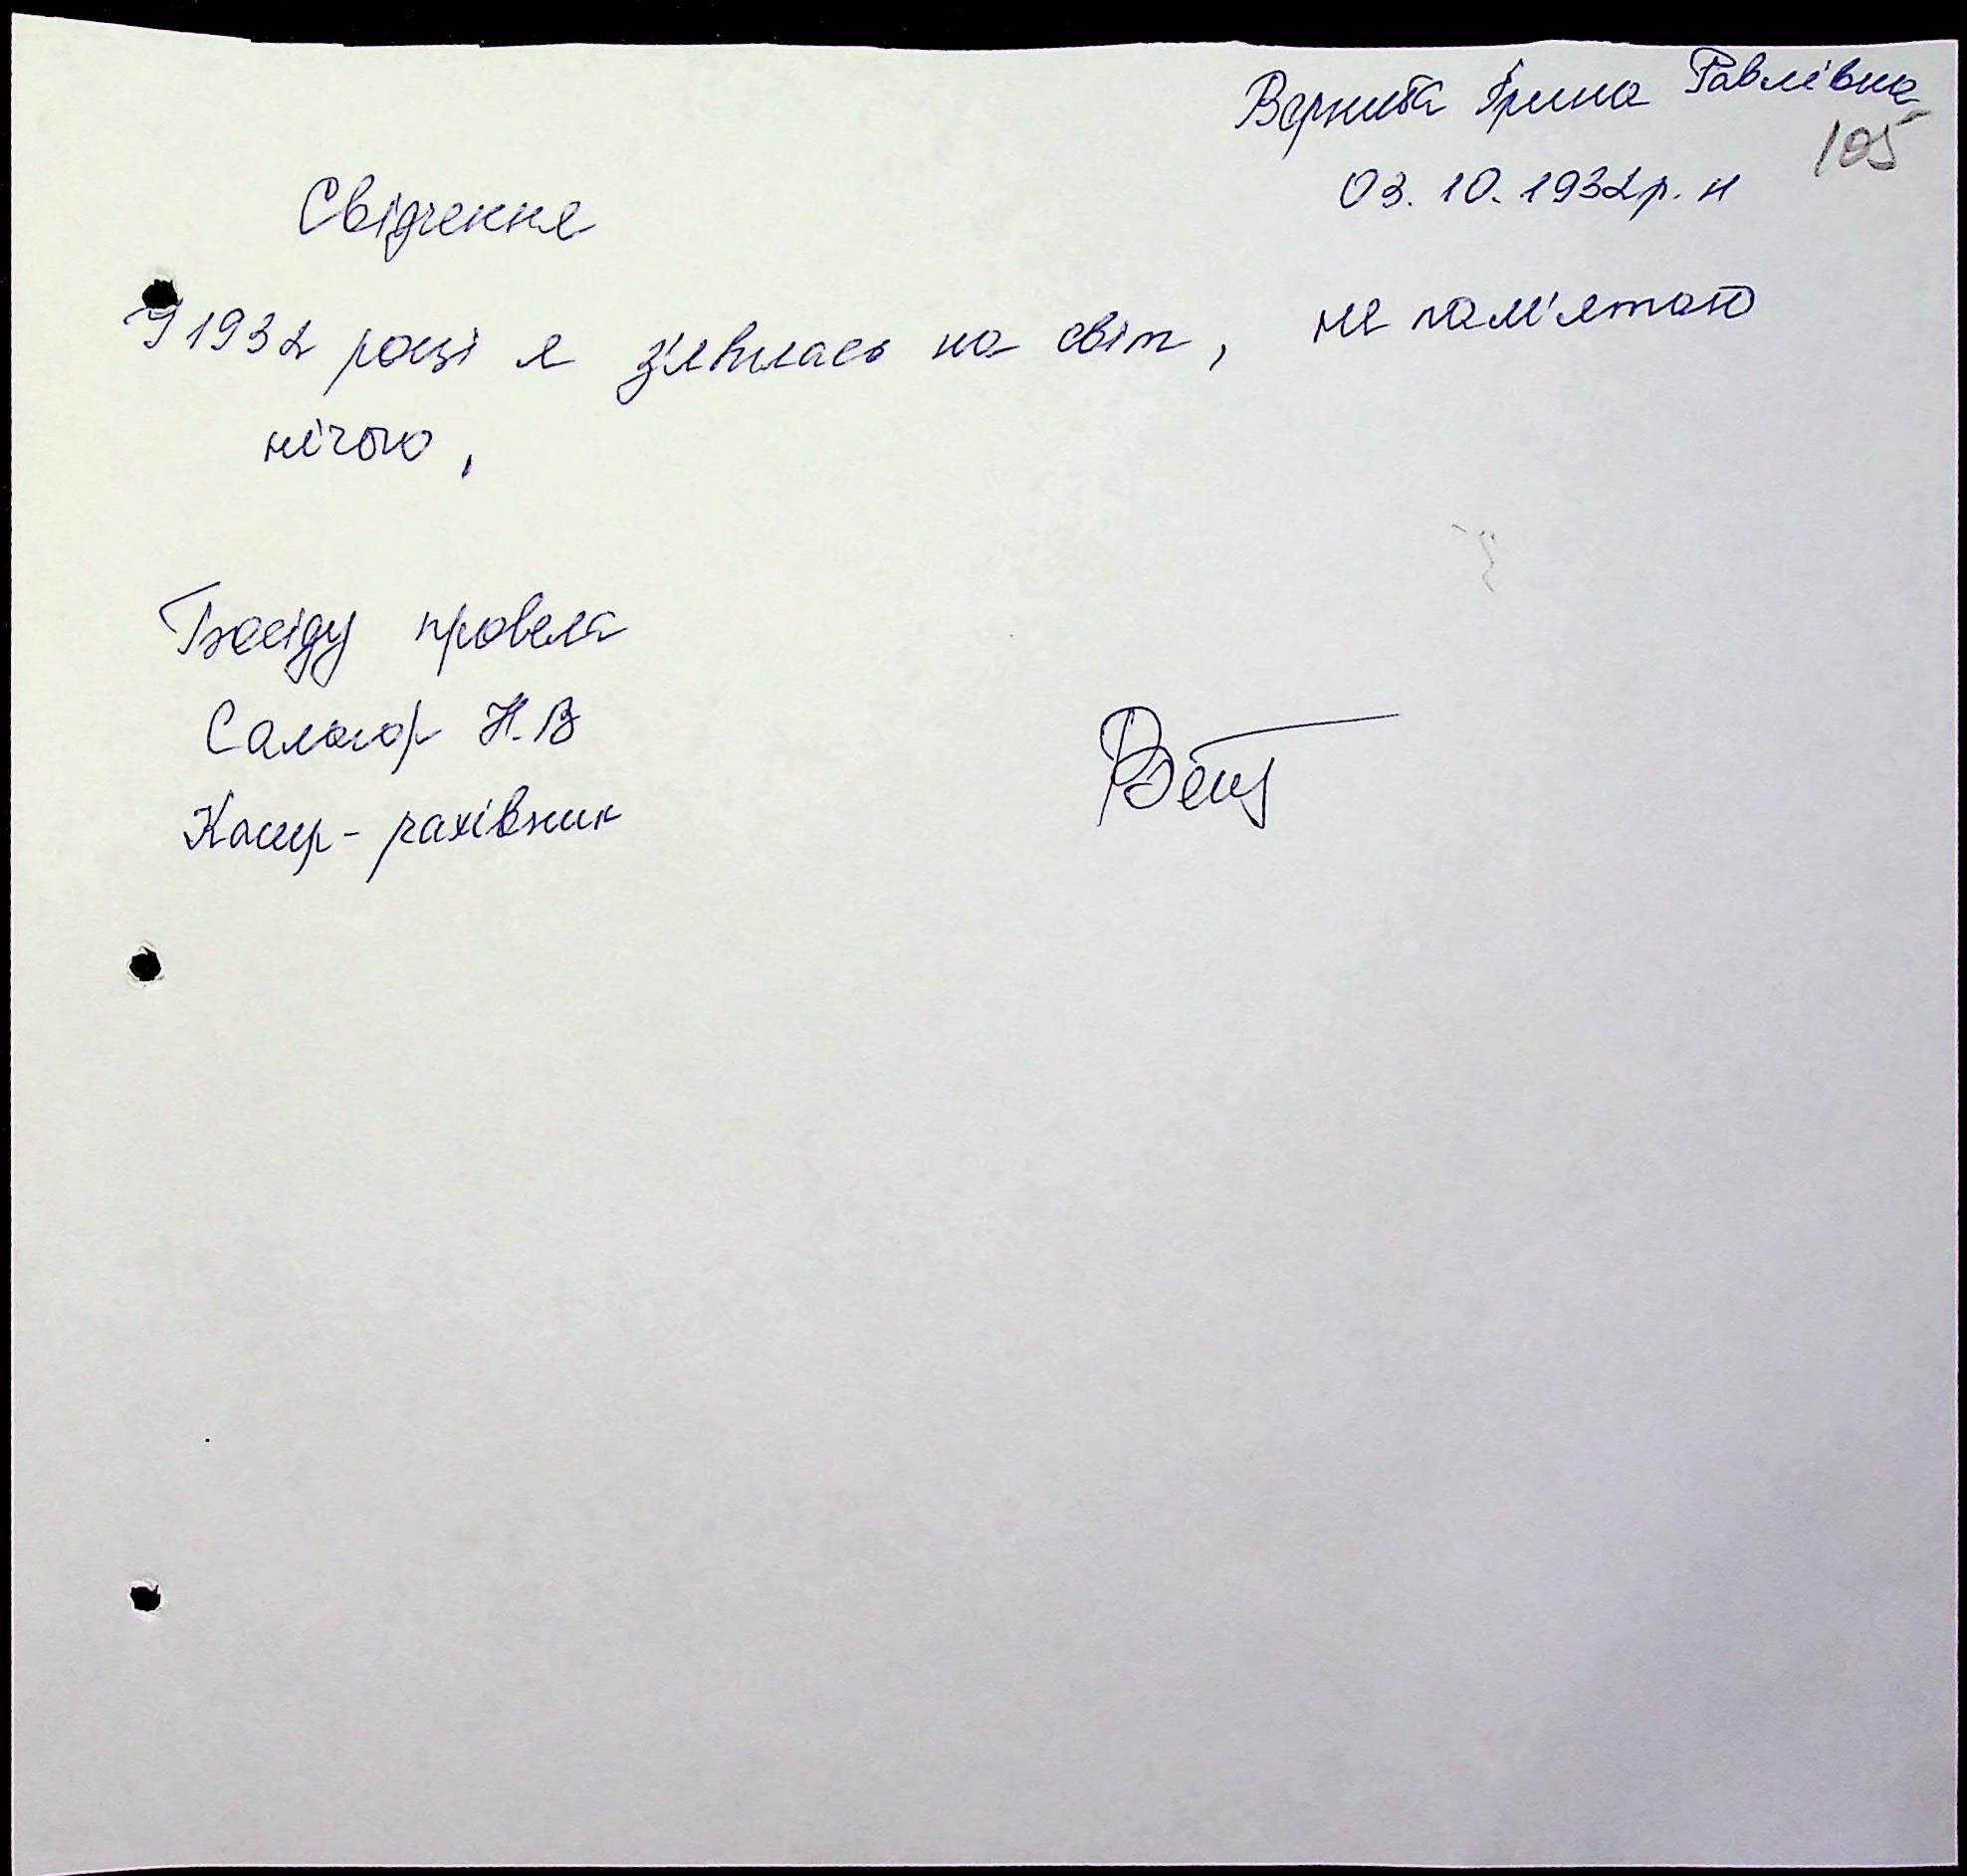 Вернита Ірина Павлівна
105
03.10.1932р.н
Свідчення
У 1932 році я з'явилась на світ, не пам'ятаю
нічого,
Бесіду провела
Саломор Н.В
Касир-рахівник